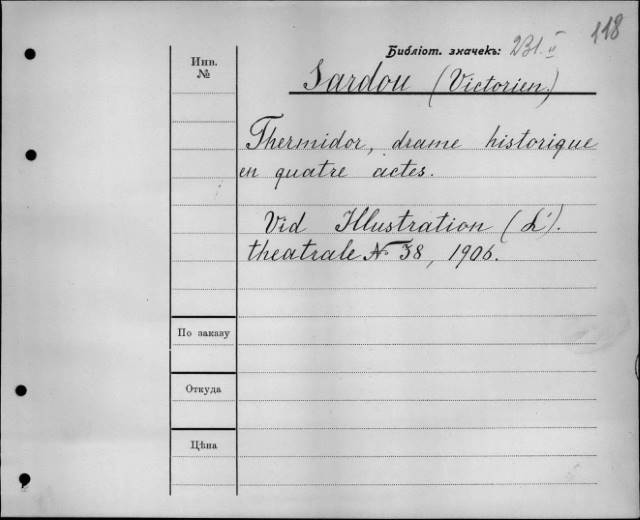 118
Библіот. значекъ: 231.II
Инв.
№
Sardou (Victorien.)
Thermidor, drame historique
en quatre actes.
Vid Illustration (L').
theatrale № 38, 1906.
По заказу
Откуда
Цѣна